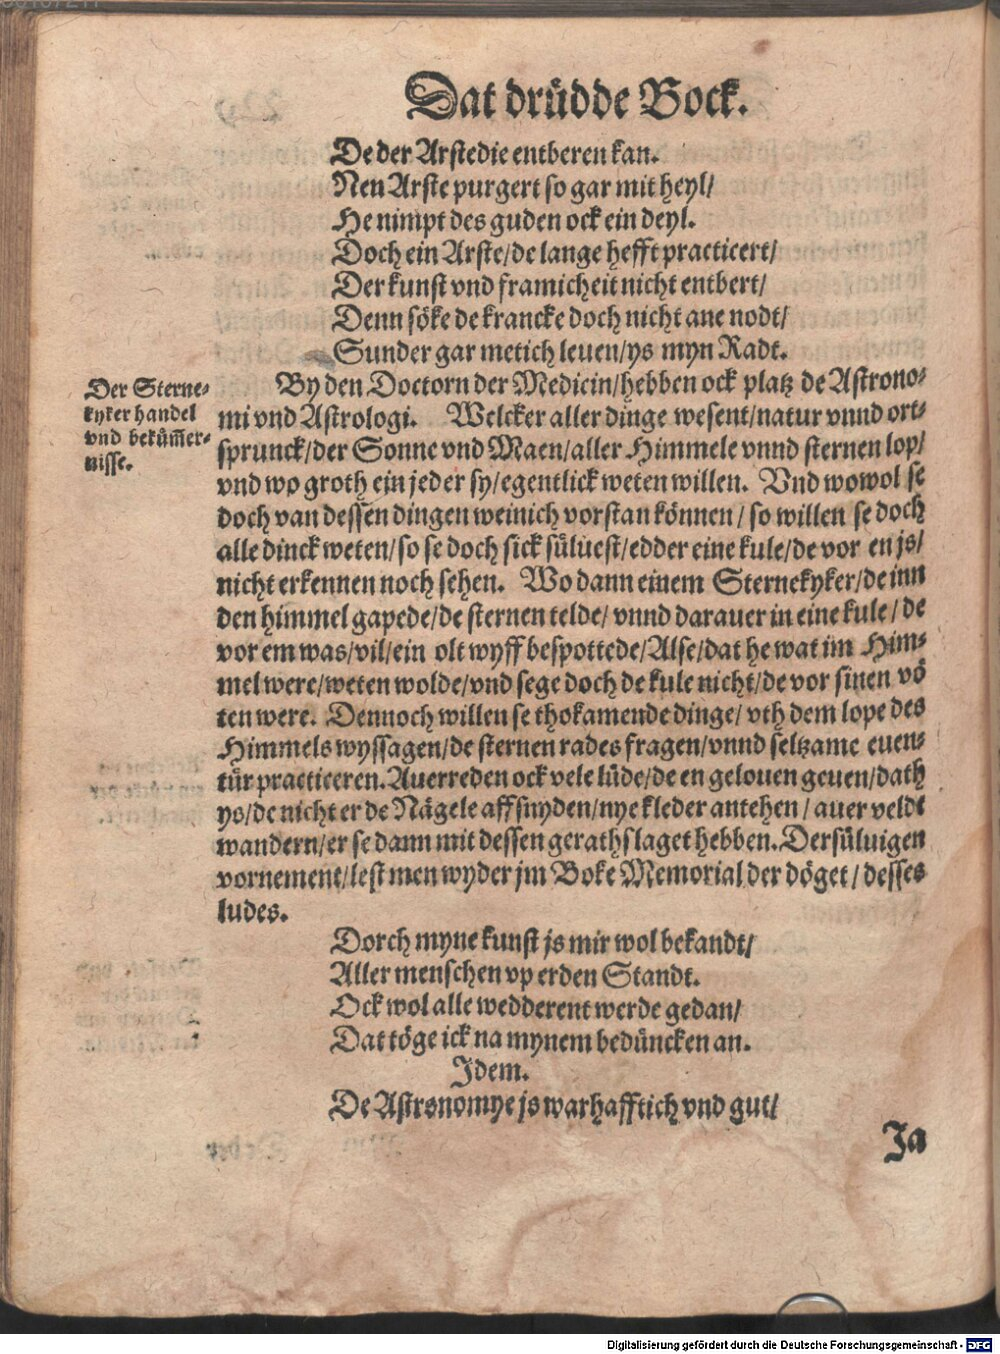 Dat drüdde Bock.
De der Arstedie entberen kan.
Nen Arste purgert so gar mit heyl/
He nimpt des guden ock ein deyl.
Doch ein Arste/de lange hefft practicert/
Der kunst vnd framicheit nicht entbert/
Denn söke de krancke doch nicht ane nodt/
Sunder gar metich leuen/ys myn Radt.
Der Sterne-
kyker handel
vnd bekům̃er-
nisse.
By den Doctorn der Medicin/hebben ock platz de Astrono-
mi vnd Astrologi. Welcker aller dinge wesent/natur vnnd ort-
sprunck/der Sonne vnd Maen/aller Himmele vnnd sternen lop/
vnd wo groth ein jeder sy/egentlick weten willen. Vnd wowol se
doch van dessen dingen weinich vorstan können/ so willen se doch
alle dinck weten/so se doch sick süluest/edder eine kule/de vor en js/
nicht erkennen noch sehen. Wo dann einem Sternekyker/de inn
den himmel gapede/de sternen telde/ vnnd darauer in eine kule/ de
vor em was/vil/ein olt wyff bespottede/Alse/dat he wat im Him-
mel were/weten wolde/vnd sege doch de kule nicht/de vor sinen vö
ten were. Dennoch willen se thokamende dinge/ vth dem lope des
Himmels wyssagen/de sternen rades fragen/vnnd seltzame euen-
tür practiceren. Auerreden ock vele lüde/de en gelouen geuen/dath
ys/de nicht er de Nägele affsnyden/nye kleder antehen/ auer veldt
wandern/er se dann mit dessen gerathslaget hebben. Dersüluigen
vornement/lest men wyder jm Boke Memorial der döget/ desses
ludes.
Dorch myne kunst js mir wol bekandt/
Aller menschen vp erden Standt.
Ock wol alle wedderent werde gedan/
Dat töge ick na mynem bedüncken an.
Idem.
De Astronomye js warhafftich vnd gut/
Ja
Digitalisierung gefördert durch die Deutsche Forschungsgemeinschaft - DFG